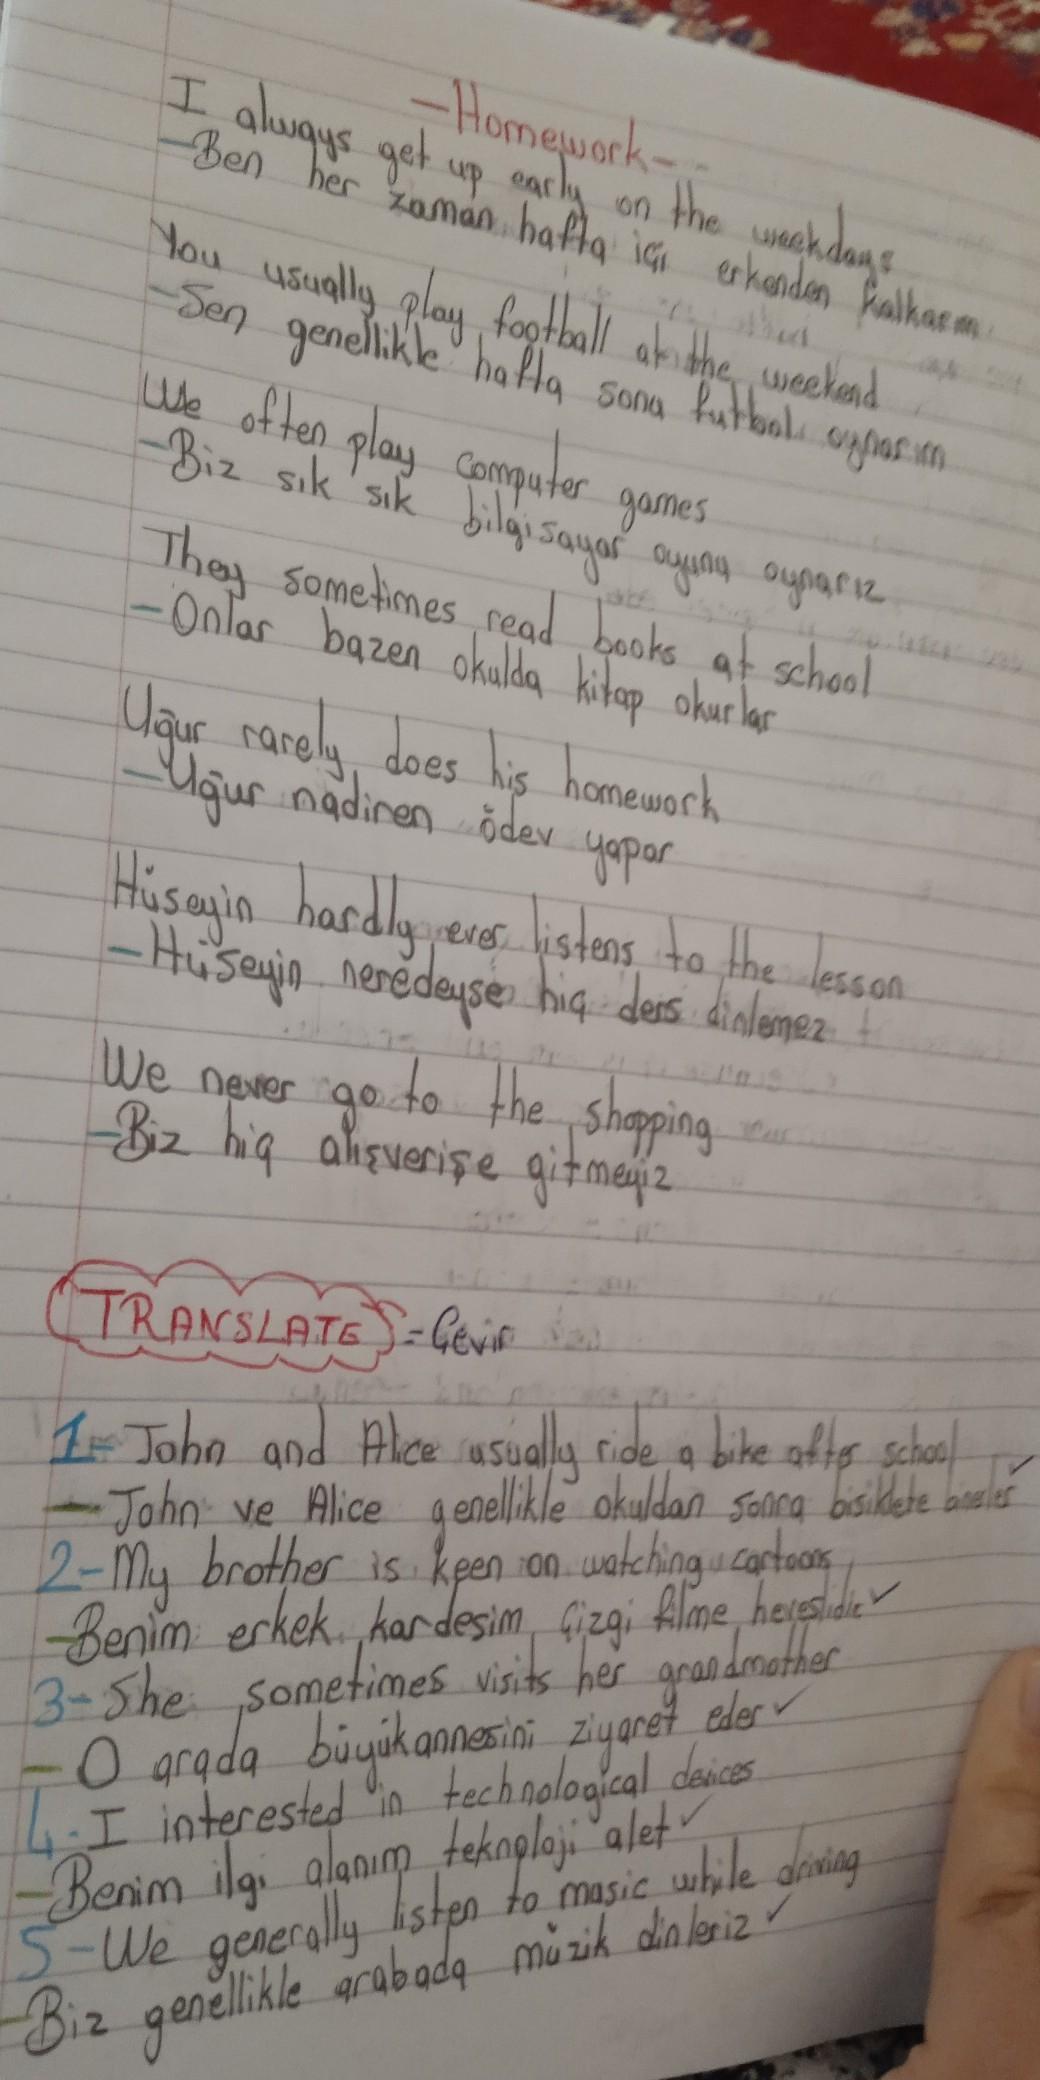 -Homework-
I always get up early on the weekdays
-Ben her zaman hafta içi erkenden kalkarım
You usually play football at the weekend
-Sen genellikle hafta sonu futbol oynarım
We often play computer games
-Biz sık sık bilgisayar oyunu oynarız
They sometimes read books at school
-Onlar bazen okulda kitap okurlar
Uğur rarely does his homework
-Uğur nadiren ödev yapar
Hüseyin hardly ever listens to the lesson
-Hüseyin neredeyse hiç ders dinlemez
We never go to the shopping
-Biz hiç alışverişe gitmeyiz
TRANSLATE = Çevir
1- John and Alice usually ride a bike after school
- John ve Alice genellikle okuldan sonra bisiklete binerler ✓
2- My brother is keen on watching cartoons
-Benim erkek kardeşim çizgi filme heveslidir ✓
3- She sometimes visits her grandmother
- O arada büyükannesini ziyaret eder ✓
4- I interested in technological devices
- Benim ilgi alanım teknoloji alet ✓
5- We generally listen to masic while driving
- Biz genellikle arabada müzik dinleriz ✓